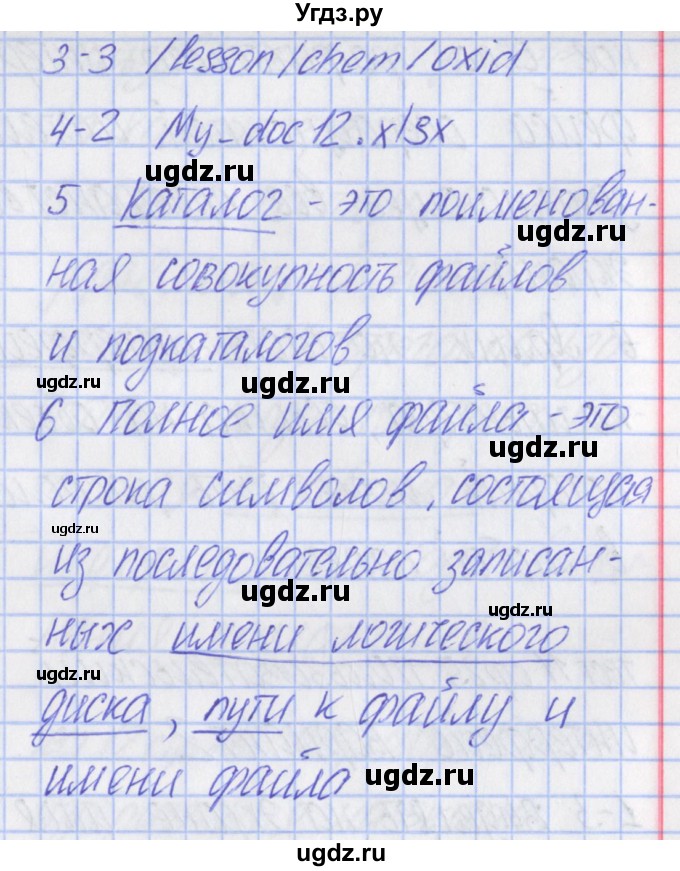 Угдз.ру
3-3 /lesson/chem/oxid
4-2 My-doc12.xlsx
ugdz.ru
5 каталог - это поименован-
ugdz.ru
ная совокупность файлов
и подкаталогов
ugdz.ru ugdz.ru
6 Полное имя файла - это
ugdz.ru
строка символов, состоящая
ugdz.ru
из последовательно записан-
ugdz.ru ugdz.ru
ных имени логического
ugdz.ru
диска, пути к файлу и
имени файла ugdz.ru
ugdz.ru